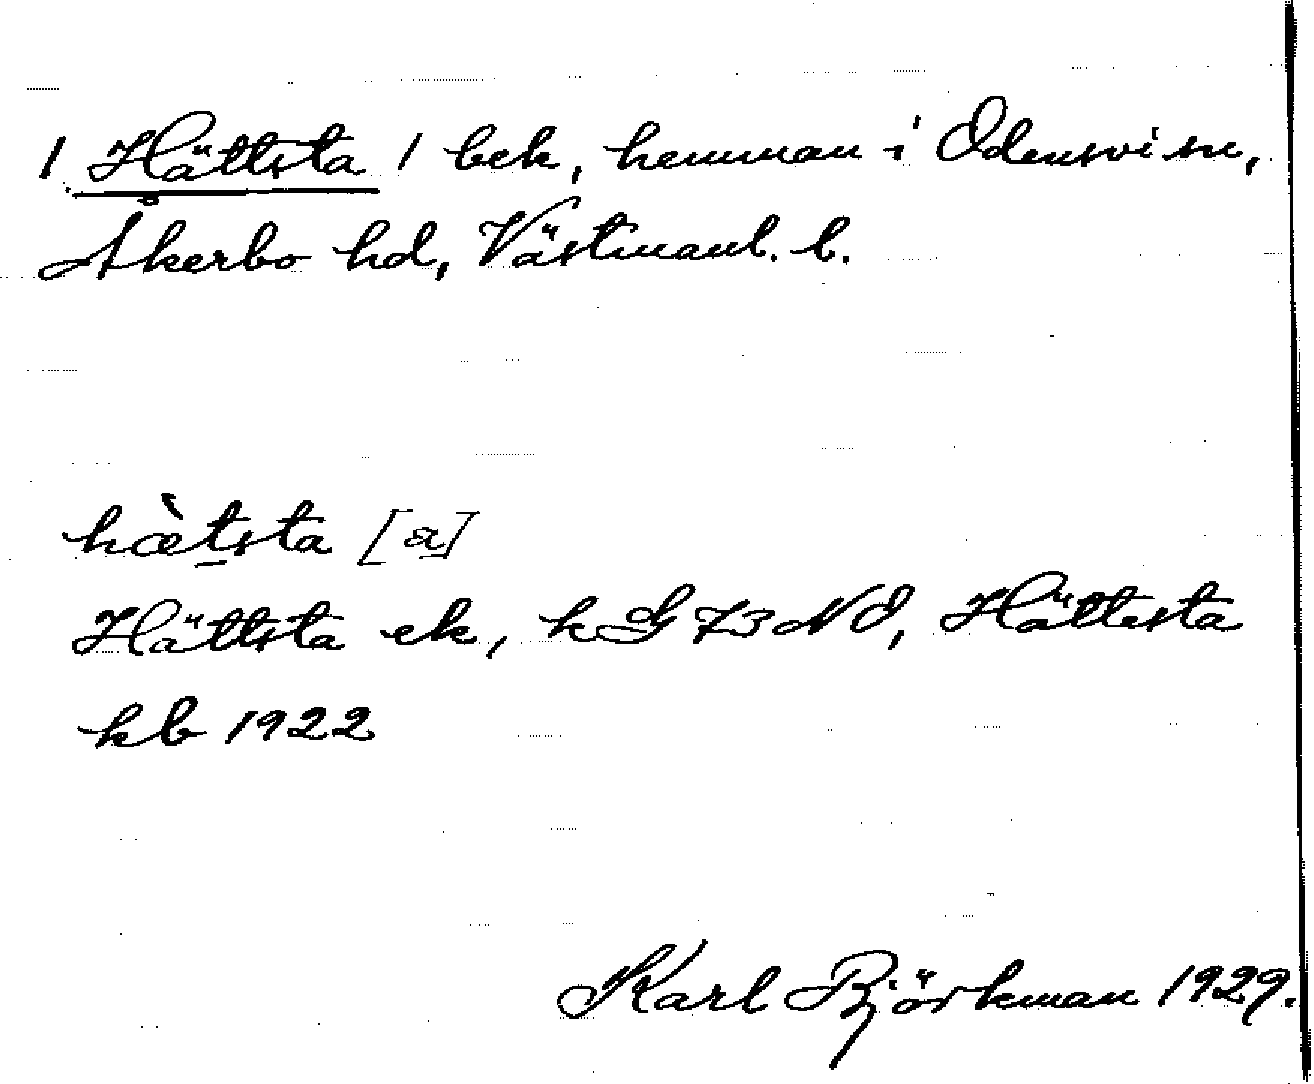 / Hättsta / bek, hemman i Odensvi sn,
Åkerbo hd, Västmanl. l.
hæ̀t̠sta [a]
Hättsta ek, k G 73 NO, Hättesta
kb 1922
Karl Björkman 1929.